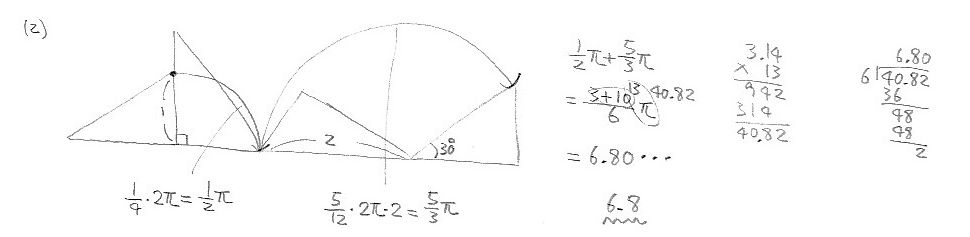 (2)
2
30°
1/4・2π=1/2π
5/12・2π・2=5/3π
1/2π+5/3π
=3+10/6π 13 40.82
=6.80・・・
6.8
3.14
× 13
942
314
40.82
6.80
6)40.82
36
48
48
2